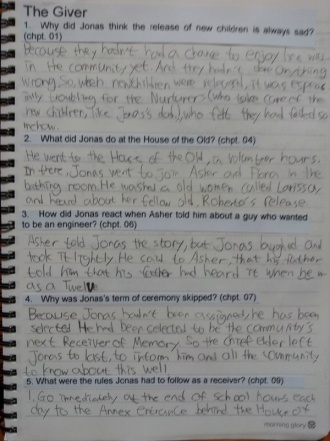 The Giver
1. Why did Jonas think the release of new children is always sad?
(chpt. 01)
Because they hadn't had a chance to enjoy life was
in the community yet. And they hadn't done anything
wrong. So, when newchildren were released, it was especia
lly troubling for the Nurturers (who take care of the
new children, like Jonas's dad), who felt they had failed so
mehow.
2. What did Jonas do at the House of the Old? (chpt. 04)
He went to the House of the Old, in volunteer hours.
In there, Jonas went to join Asher and Fiona in the
bathing room. He washed a old women called Larissa,
and heard about her fellow old, Roberto's release.
3. How did Jonas react when Asher told him about a guy who wanted
to be an engineer? (chpt. 06)
Asher told Jonas the story, but Jonas laughed and
took it lightly. He said to Asher, that his father
told him that his father had heard it when he w
as a Twelve
4. Why was Jonas's term of ceremony skipped? (chpt. 07)
Because Jonas hadn't been assigned, he has been
selected. He had been selected to be the community's
next Receiver of Memory. So the chief elder left
Jonas to last, to inform him and all the community
to know about this well
5. What were the rules Jonas had to follow as a receiver? (chpt. 09)
1. Go immediately at the end of school hours each
day to the Annex entrance behind the House of
morning glory